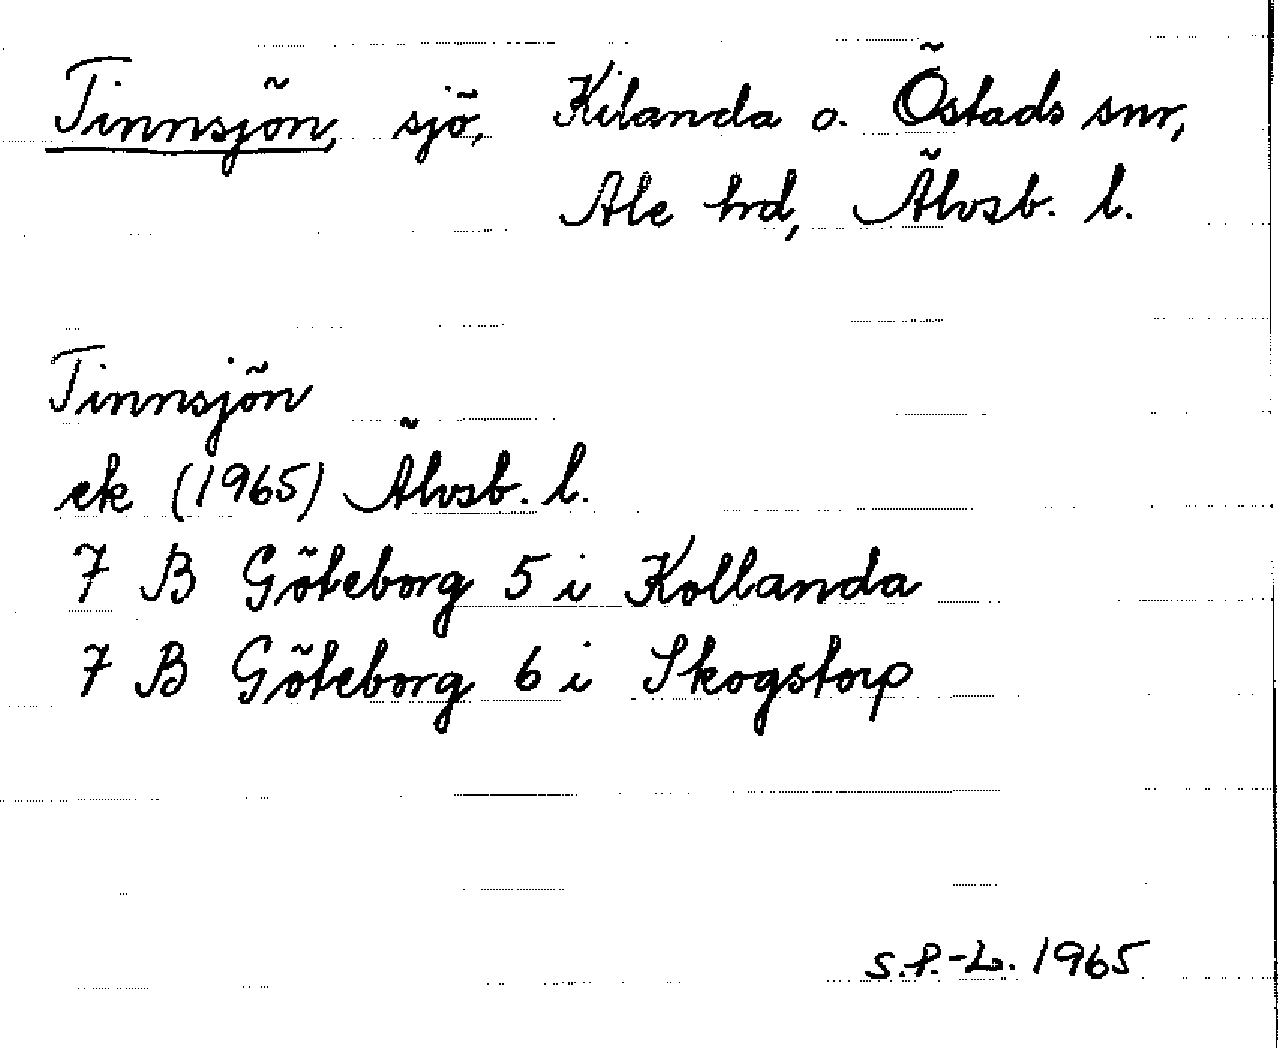 Tinnsjön, sjö, Kilanda o. Östads snr,
Ale hrd, Älvsb. l.
Tinnsjön
ek (1965) Älvsb. l.
7 B Göteborg 5 i Kollanda
7 B Göteborg 6 i Skogstorp
S.P.-L. 1965